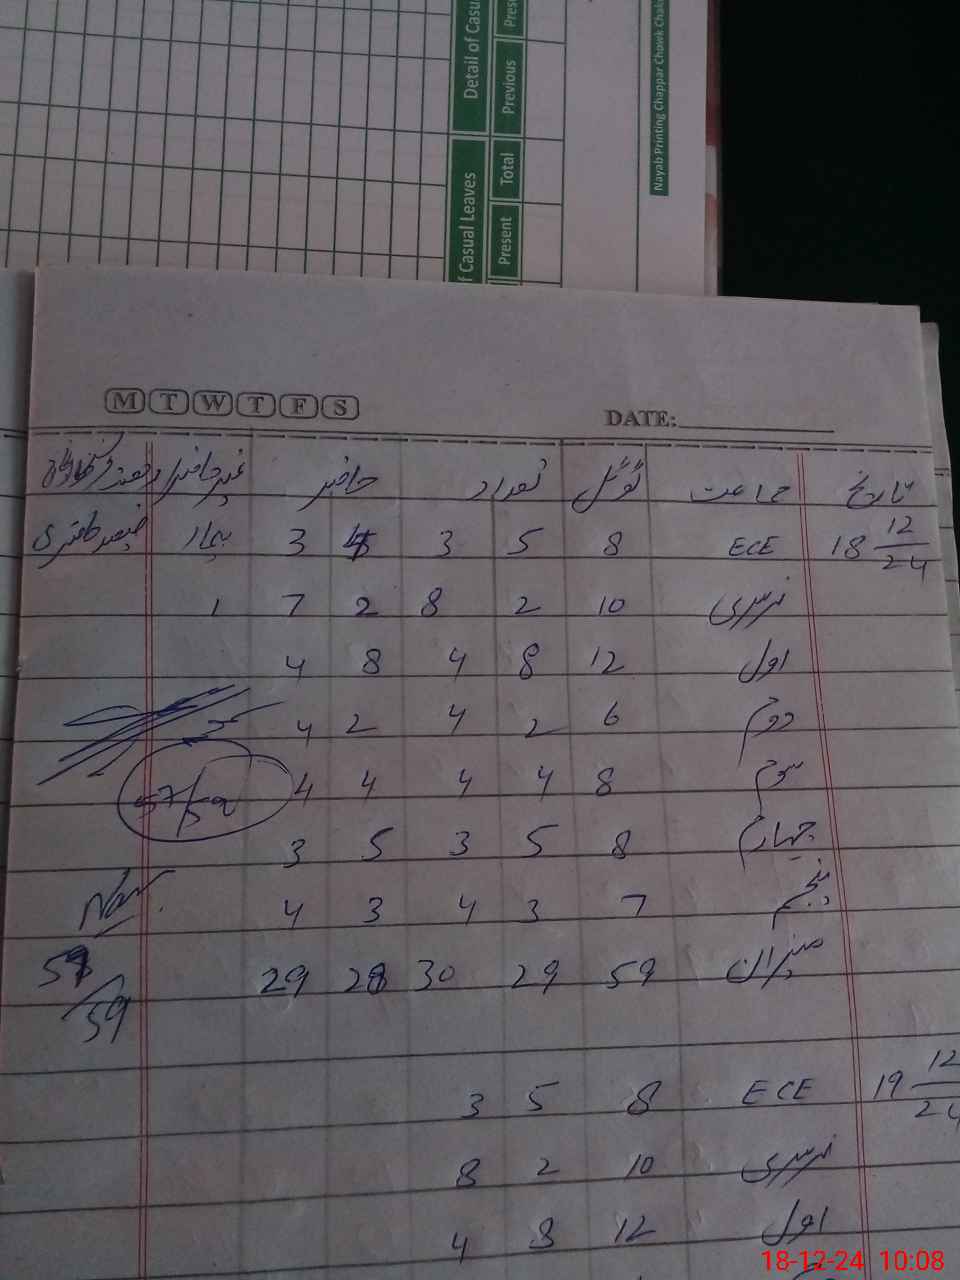 Detail of Casu
Previous
Prese
f Casual Leaves
Present
Total
Nayab Printing Chappar Chowk Chak
M T W T F S
DATE:
تاریخ جماعت ٹوٹل تعداد حاضر غیر حاضر
18 12/24 ECE 8 5 3 4 3 بیمار
نرسری 10 2 8 2 7 1
اول 12 8 4 8 4
دوم 6 2 4 2 4
سوم 8 4 4 4 4
57/59
چہارم 8 5 3 5 3
پنجم 7 3 4 3 4
میزان 59 29 30 28 29
/59
19 12/24 ECE 8 5 3
نرسری 10 2 8
اول 12 8 4
18-12-24 10:08